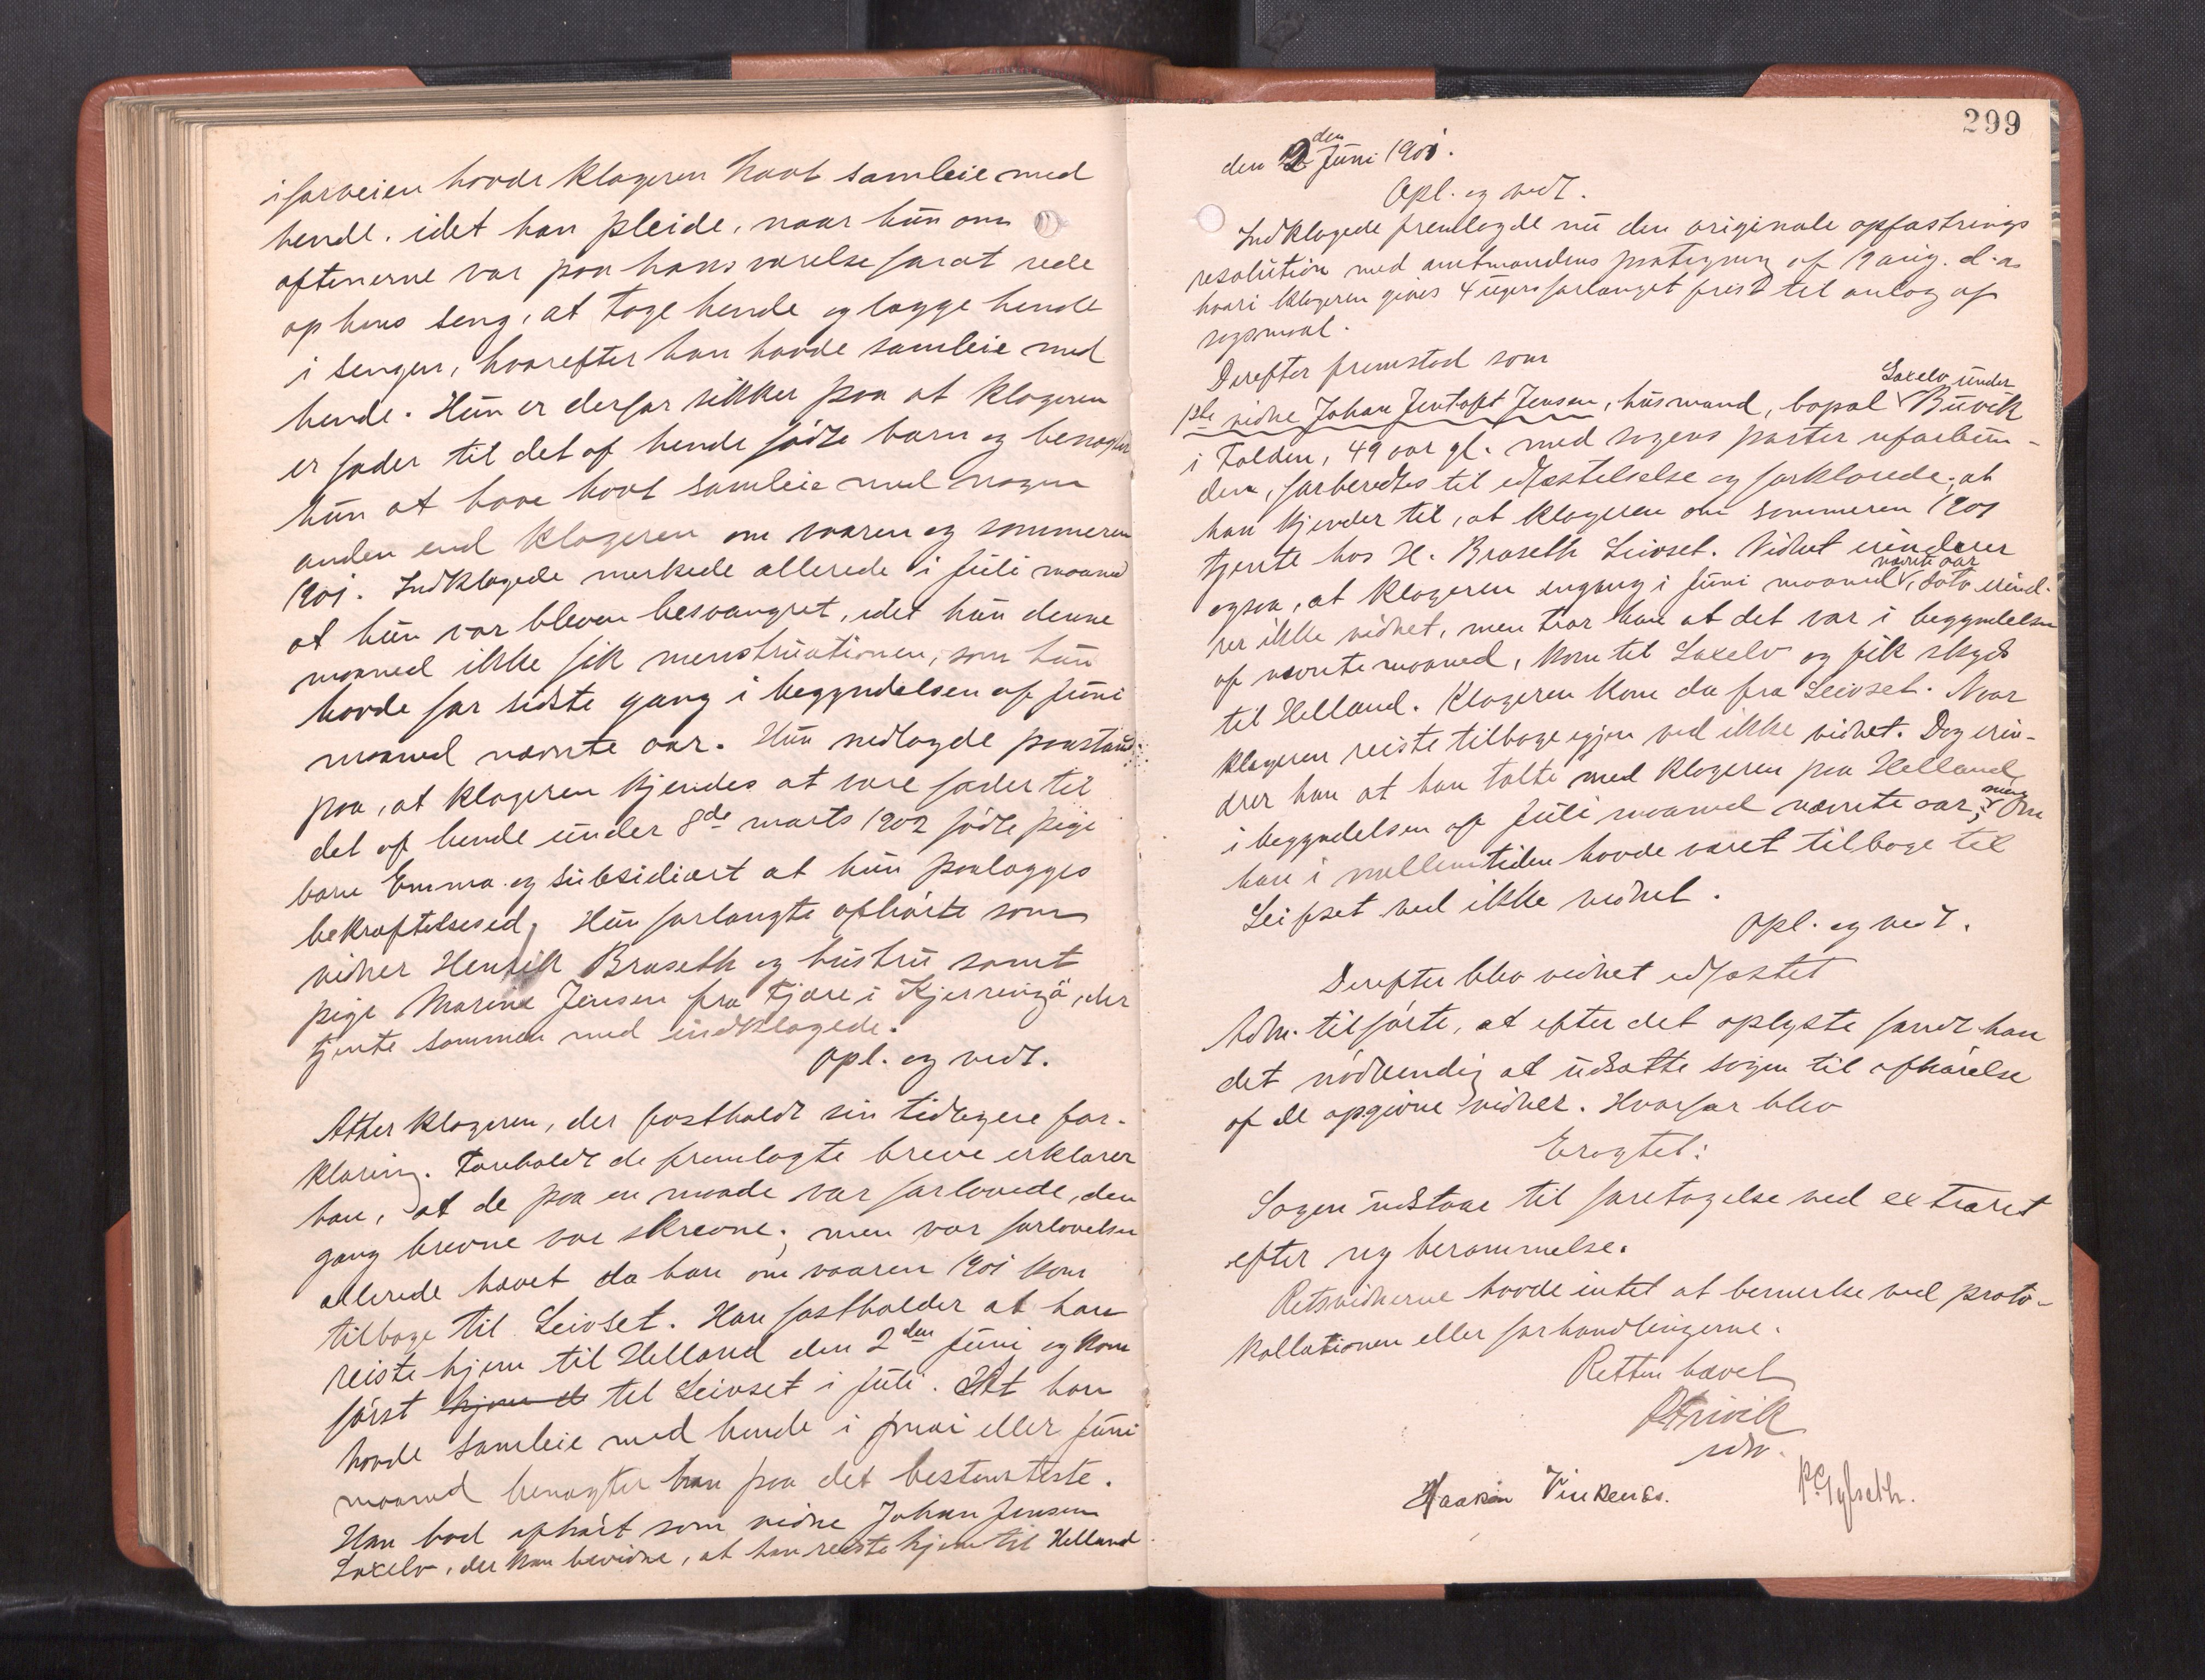 i forveien havde klageren havt samleie med
hende, idet han pleide, naar hun om
aftenerne var paa hans værelse forat rede
op hans seng, at tage hende og lægge hende
i sengen, hvorefter han havde samleie med
hende. Hun er derfor sikker paa at klageren
er fader til det af hende fødte barn og benægter
hun at have havt samleie med nogen
anden end klageren om vaaren og sommeren
1901. Indklagede merkede allerede i juli maaned
at hun var bleven besvangret, idet hun denne
maaned ikke fik menstruationen, som hun
havde for sidste gang i begyndelsen af juni
maaned nævnte aar. Hun nedlagde paastand
paa, at klageren kjendes at være fader til
det af hende under 8de marts 1902 fødte pige
barn Emma og subsidiært at hun paalægges
bekræftelsesed. Hun forlangte afhørte som
vidner Henrik Braseth og hustru samt
pige Marine Jensen fra Fjære i Kjerringø, der
tjente sammen med indklagede.
Opl. og vedt.
Atter klageren, der fastholdt sin tidligere for-
klaring. Foreholdt de fremlagte breve erklærer
han, at de paa en maade var forlovede, den
gang brevne var skrevne; men var forlovelsen
allerede hævet da han om vaaren 1901 kom
tilbage til Leivset. Han fastholder at han
reiste hjem til Helland den 2den juni og kom
først hjem til Leivset i juli. At han
havde samleie med hende i mai eller juni
maaned benægter han paa det bestemteste.
Han bad afhørt som vidne Johan Jensen
Laxelv, der kan bevidne, at han reiste hjem til Helland
299
den 2den juni 1901.
Opl. og vedt.
Indklagede fremlagde nu den originale opfostrings
resolution med amtmandens paategning af 19 aug. d.a.
hvori klageren gives 4 ugers forlænget frist til anlæg af
søgsmaal.
Derefter fremstod som
Laxelv under
1ste vidne Johan Jentoft Jensen, husmand, bopæl Buvik
i Folden, 49 aar gl. med sagens parter uforbun-
den, forberedtes til edfæstelselse og forklarede, at
han kjender til, at klageren om sommeren 1901
tjente hos H. Braseth Leivset. Vidnet erindrer
nævnte aar
ogsaa, at klageren engang i juni maaned, dato erind-
rer ikke vidnet, men tror han at det var i begyndelsen
af nævnte maaned, kom til Laxelv og fik skyds
til Helland. Klageren kom da fra Leivset. Naar
klageren reiste tilbage igjen ved ikke vidnet. Dog erin-
drer han at han talte med klageren paa Helland
men
i begyndelsen af juli maaned nævnte aar, Om
han i mellemtiden havde været tilbage til
Leifset ved ikke vidnet.
Opl. og vedt.
Derefter blev vidnet edfæstet
Adm. tilførte, at efter det oplyste fandt han
det nødvendig at udsætte sagen til afhørelse
af de opgivne vidner. Hvorfor blev
Eragtet:
Sagen udstaar til foretagelse ved extraret
efter ny berammelse.
Retsvidnerne havde intet at bemerke ved proto-
kollationen eller forhandlingerne.
Retten hævet
Haakon Vinkenes.
P. Gylseth.